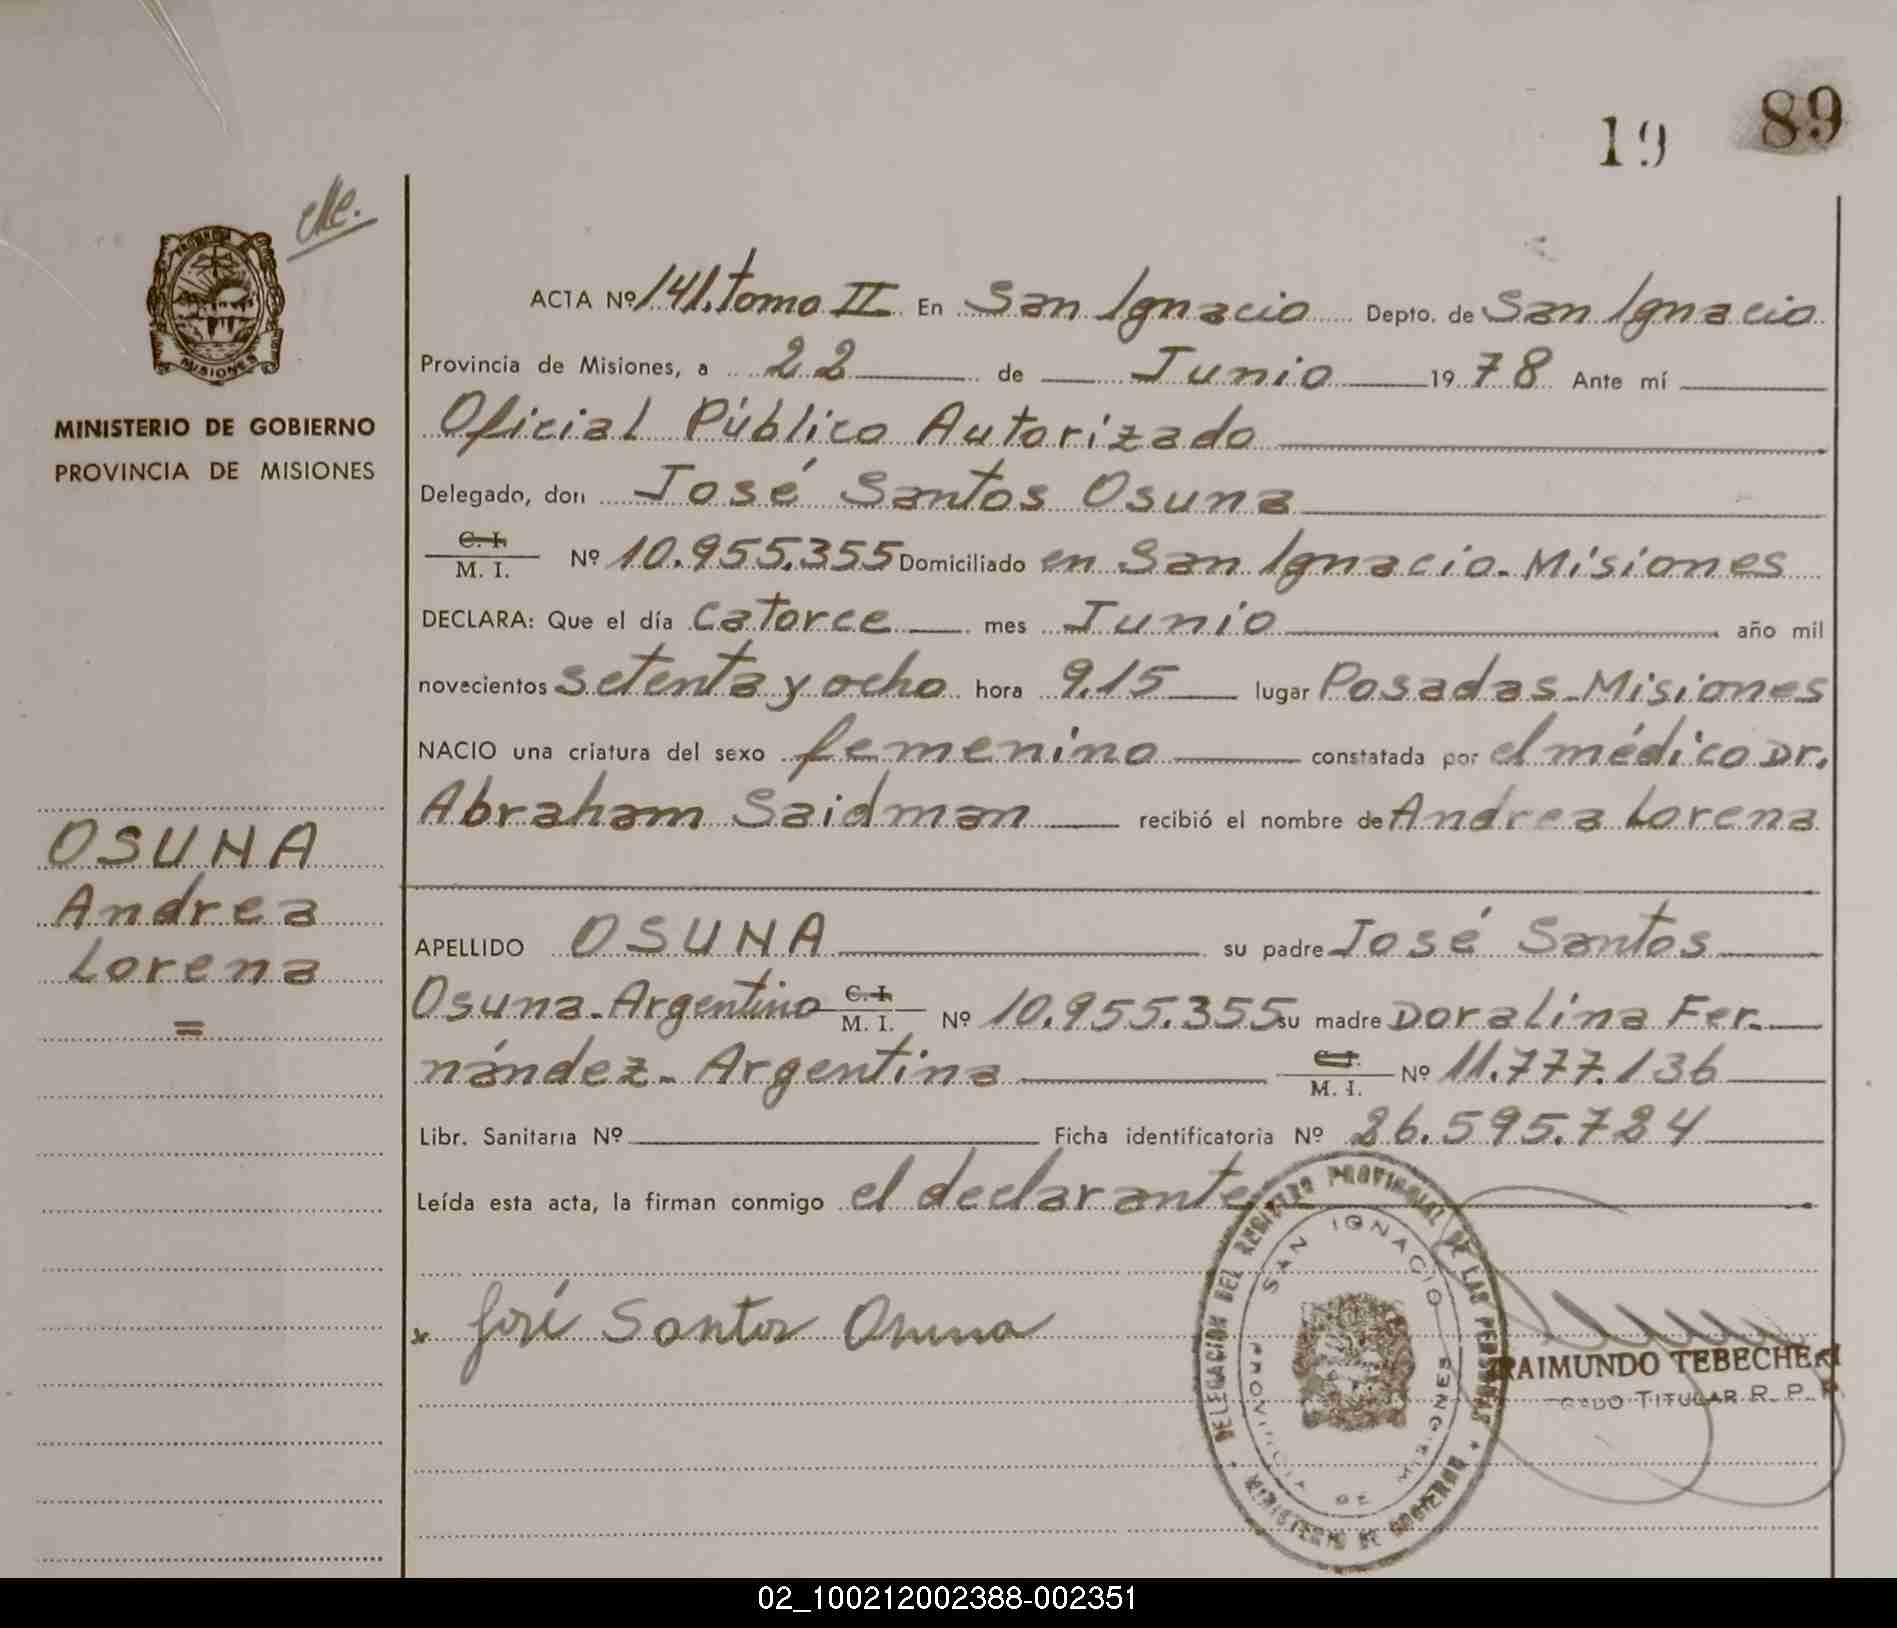 19 89
Me.
PROVINCIA DE
MISIONES
MINISTERIO DE GOBIERNO
PROVINCIA DE MISIONES
OSUNA
Andrea
Lorena
=
ACTA Nº 141. Tomo II En San Ignacio Depto. de San Ignacio
Provincia de Misiones, a 22 de Junio 1978 Ante mí
Oficial Público Autorizado
Delegado, don José Santos Osuna
C. I. / M. I. Nº 10.955.355 Domiciliado en San Ignacio - Misiones
DECLARA: Que el día catorce mes Junio año mil
novecientos setenta y ocho hora 9.15 lugar Posadas - Misiones
NACIO una criatura del sexo femenino constatada por el médico Dr.
Abraham Saidman recibió el nombre de Andrea Lorena
APELLIDO OSUNA su padre José Santos
Osuna - Argentino C. I. / M. I. Nº 10.955.355 su madre Doralina Fer-
nández - Argentina C. I. / M. I. Nº 11.777.136
Libr. Sanitaria Nº Ficha identificatoria Nº 26.595.724
Leída esta acta, la firman conmigo el declarante
x José Santos Osuna
DELEGACION DEL REGISTRO PROVINCIAL DE LAS PERSONAS
MINISTERIO DE GOBIERNO
SAN IGNACIO
PROVINCIA DE MISIONES
RAIMUNDO TEBECHERI
GADO TITULAR R. P.
02_100212002388-002351